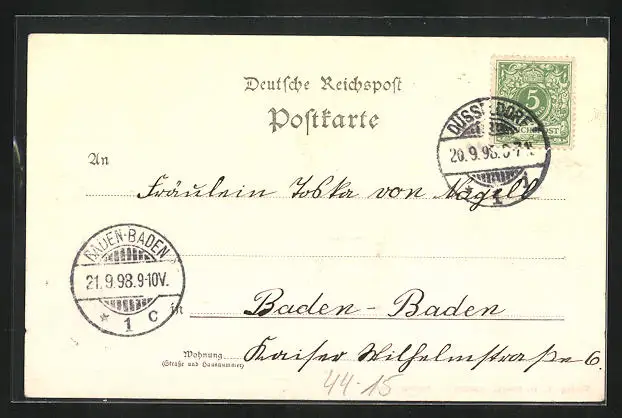 Deutsche Reichspost
Postkarte
5
DÜSSELDORF
20.9.98.6-7N.
* 1
An
Fräulein Toska von Nagell
BADEN-BADEN
21.9.98.9-10V.
* 1 c
in Baden-Baden
Wohnung
(Straße und Hausnummer)
Kaiser Wilhelmstraße 6.
44-15